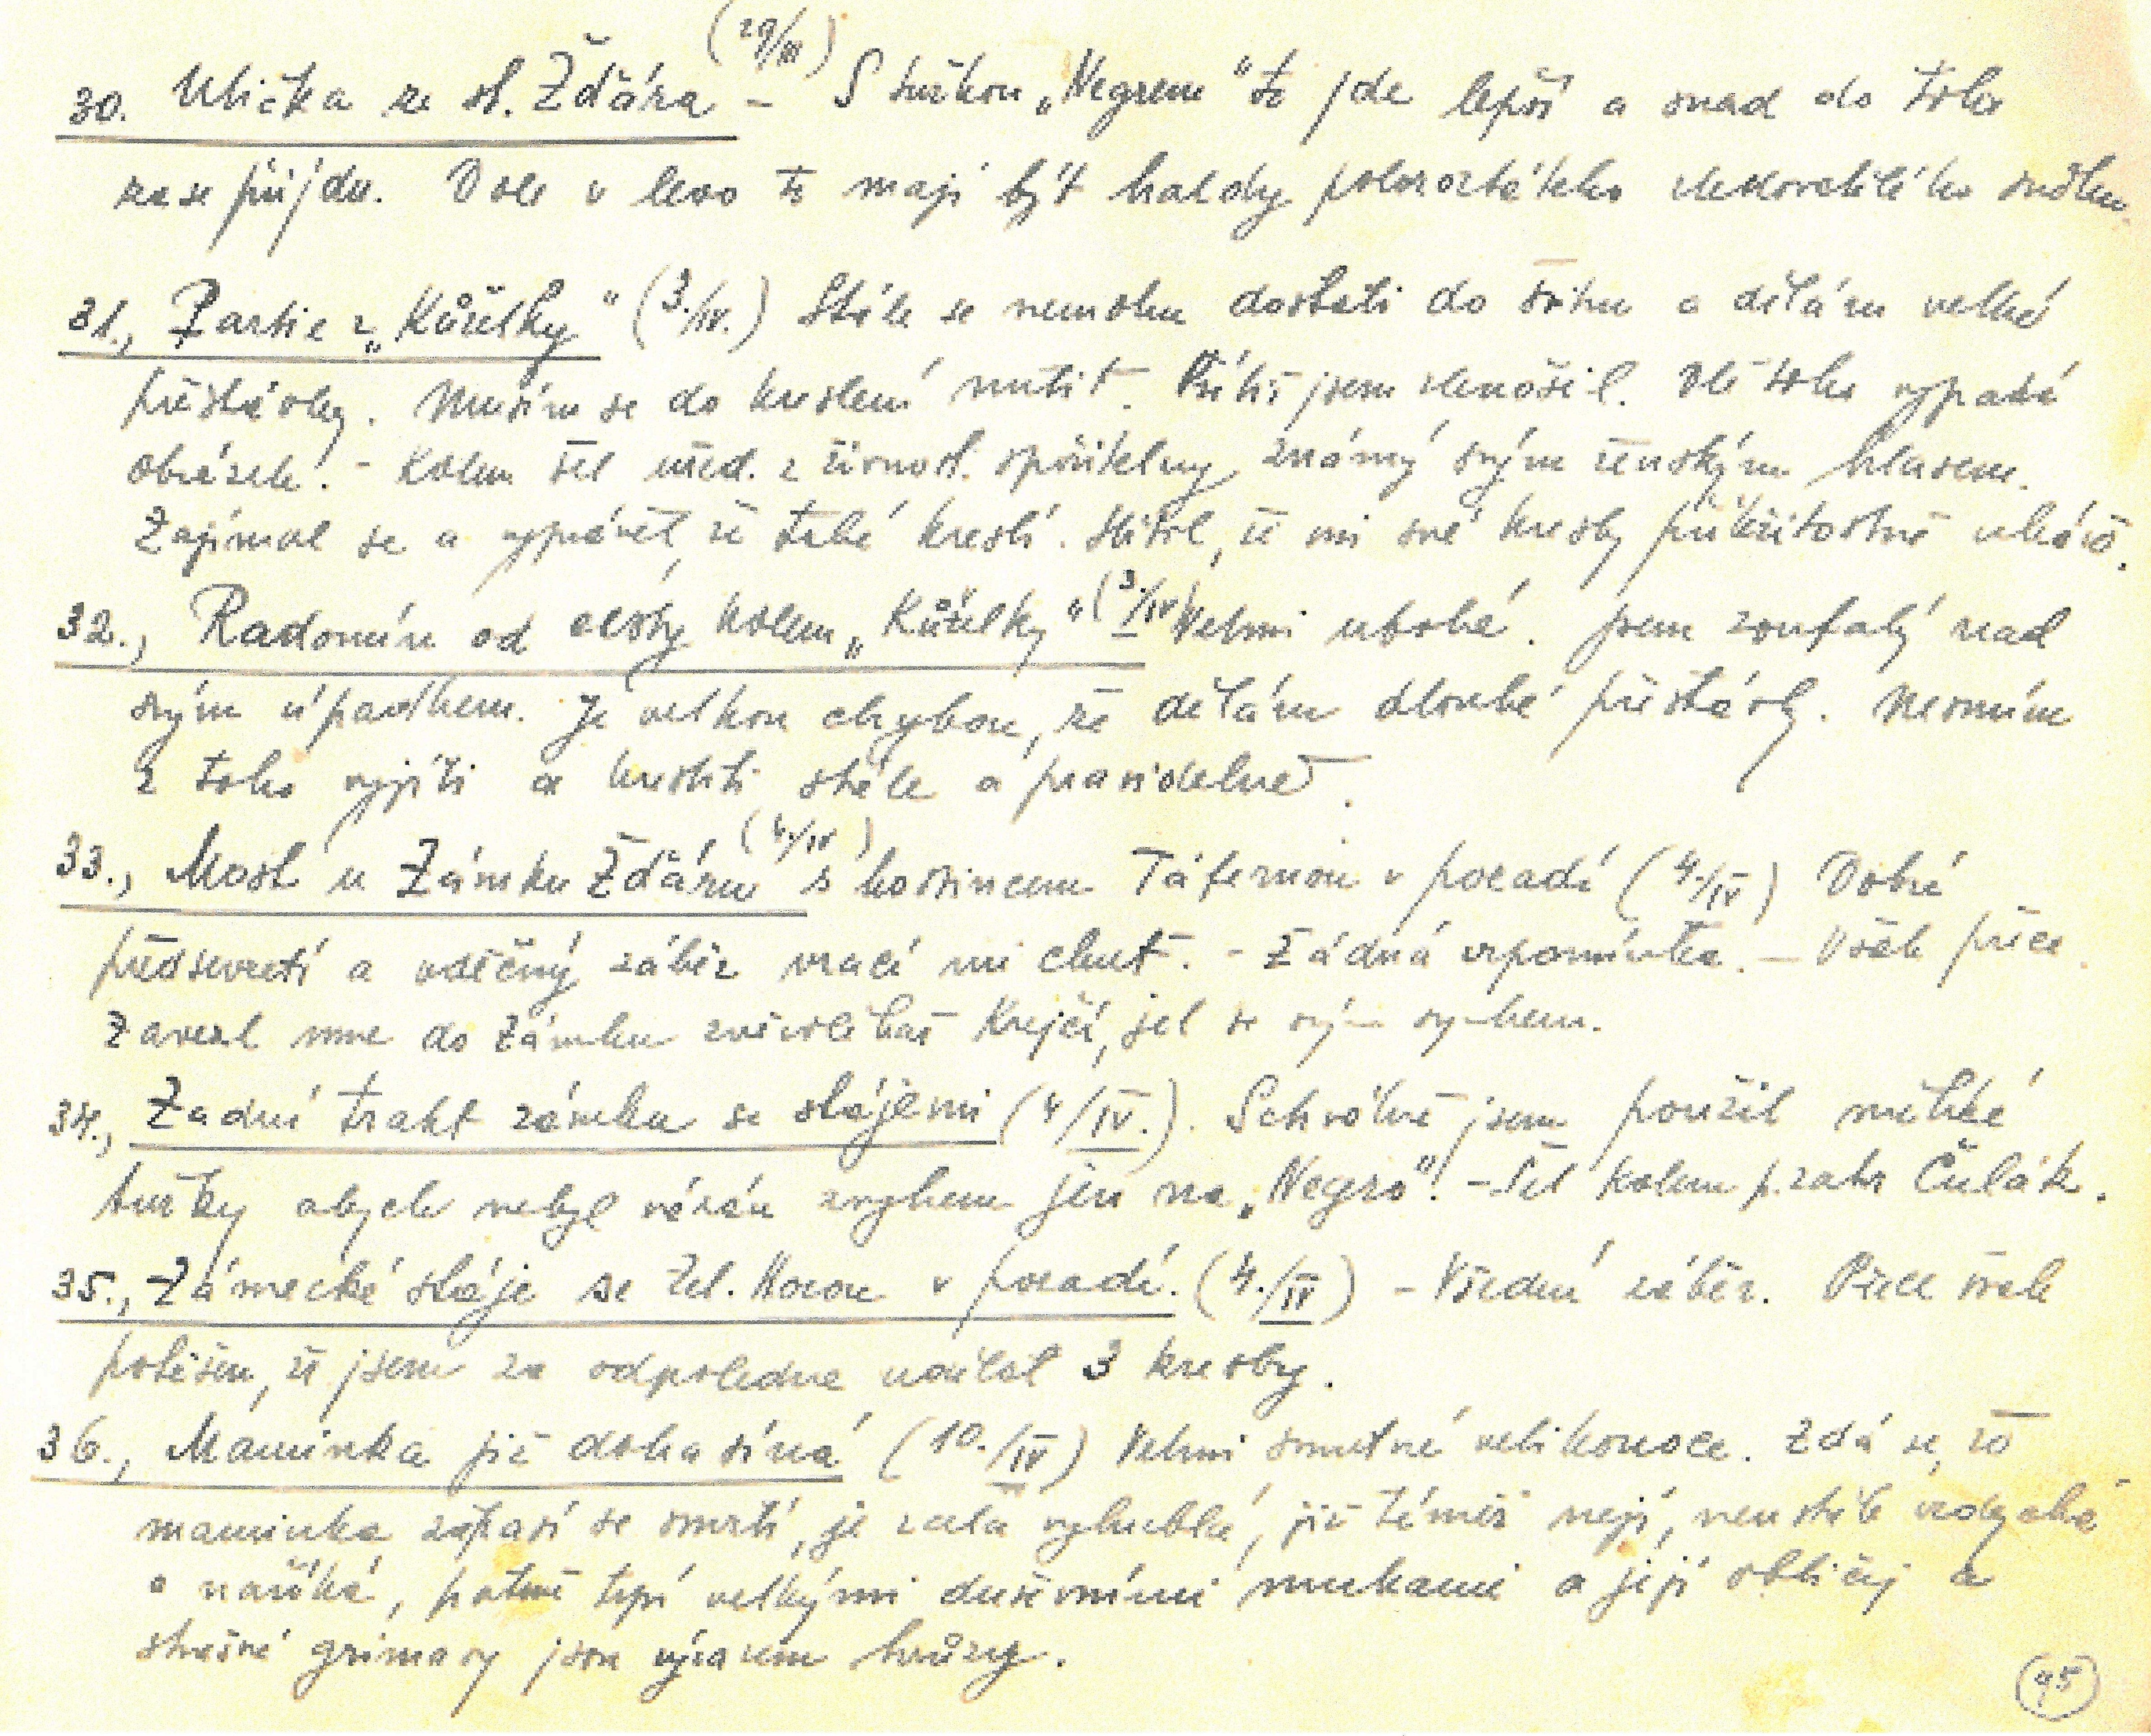 30. Ulička ze st. Žďára (29/III) – S tužkou „Negrem" to jde lepší a snad do toho
zase přijdu. Dole v levo to mají být haldy polorozbátého sněhu.
31., Partie z „Kůželky" (3./IV.) Stále se nemohu dostati do švihu a dělám velké
přestávky. Musím se do kreslení nutit. Příliš jsem slenošil. Dle toho vypadá
obrázek. – Kolem šel úřed. z živnost. spořitelny, známý svým ženským hlasem.
Zajímal se a vyprávěl, že také kreslí. Slíbil, že mi své kresby příležitostně ukáže.
32., Radonín od cesty kolem „Kůželky" (3/IV) Velmi ubohé. Jsem zoufalý nad
svým úpadkem. Je velkou chybou, že dělám dlouhé přestávky. Nesmím
z toho vyjíti a kresliti stále a pravidelně.
33., Most u Zámku Žďáru (4./IV) s hostincem Táfernou v pozadí (4./IV) Dobré
předsevzetí a vděčný záběr vrací mi chuť. – Žádná vzpomínka. – Však přece.
Zavezl mne do Zámku zvěrolékař Krejčí, jel se svým synkem.
34., Zadní trakt zámku se stájemi (4/IV.). Schválně jsem použil měkké
tužky abych nebyl vázán zvykem jen na „Negro". – Šel kolem p. zahr Čulák.
35., Zámecké stáje se Zel. Horou v pozadí. (4./IV) – Všední záběr. Přece však
potěšen, že jsem za odpoledne udělal 3 kresby.
36., Maminka již dohasíná (10./IV) Velmi smutné velikonoce. Zdá se, že
maminka zápasí se smrtí, je zcela vyhublá, již téměř nejí, neustále vzdychá
a naříká, patrně trpí velkými duševními mukami a její obličej a
strašné grimasy jsou výrazem hrůzy.
(95)